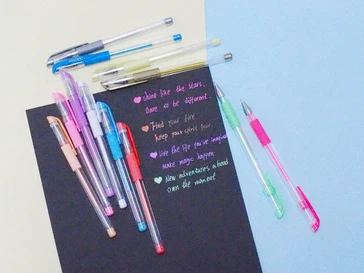 Shine like the stars,
Dare to be different
Find your fire
keep your spirit free
Live the life you've imagined
Make magic happen
New adventures ahead
own the moment